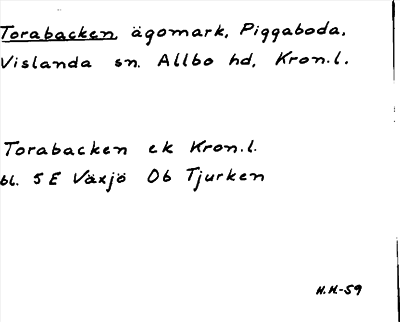 Torabacken, ägomark, Piggaboda,
Vislanda sn. Allbo hd, Kron.l.
Torabacken ek Kron.l.
bl. 5 E Växjö Ob Tjurken
H.H-59